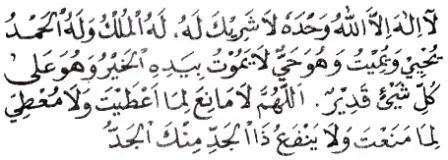 لَآ اِلٰهَ اِلاَّ اللهُ وَحْدَهُ لاَ شَرِيْكَ لَهُ، لَهُ الْمُلْكُ وَلَهُ الْحَمْدُ
يُحْيِيْ وَيُمِيْتُ وَهُوَحَيٌّ لاَ يَمُوْتُ بِيَدِهِ الْخَيْرُ وَهُوَ عَلىٰ
كُلِّ شَيْئٍ قَدِيْرٌ. اَللّٰهُمَّ لاَ مَانِعَ لِمَا اَعْطَيْتَ وَلاَ مُعْطِيَ
لِمَا مَنَعْتَ وَلاَ يَنْفَعُ ذَا الْجَدِّ مِنْكَ الْجَدُّ